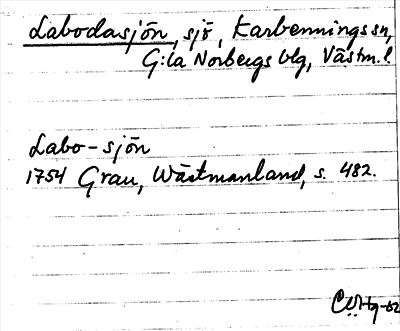 Labodasjön, sjö, Karbennings sn,
G:la Norbergs blg, Västm. l.
Labo-sjön
1754 Grau, Wästmanland, s. 482.